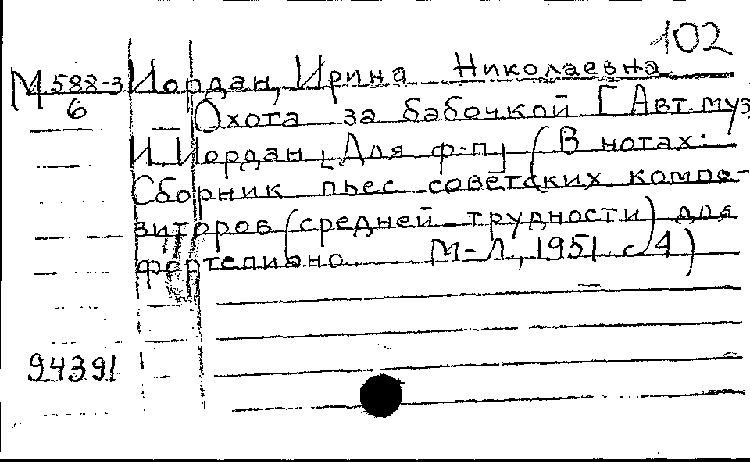 102
М 588-3 Иордан, Ирина Николаевна
6 Охота за бабочкой [Авт. муз
И. Иордан, Для ф-п, (В нотах:
Сборник пьес советских компо-
зиторов (средней трудности) для
фортепиано М-Л, 1951 с 4)
94391